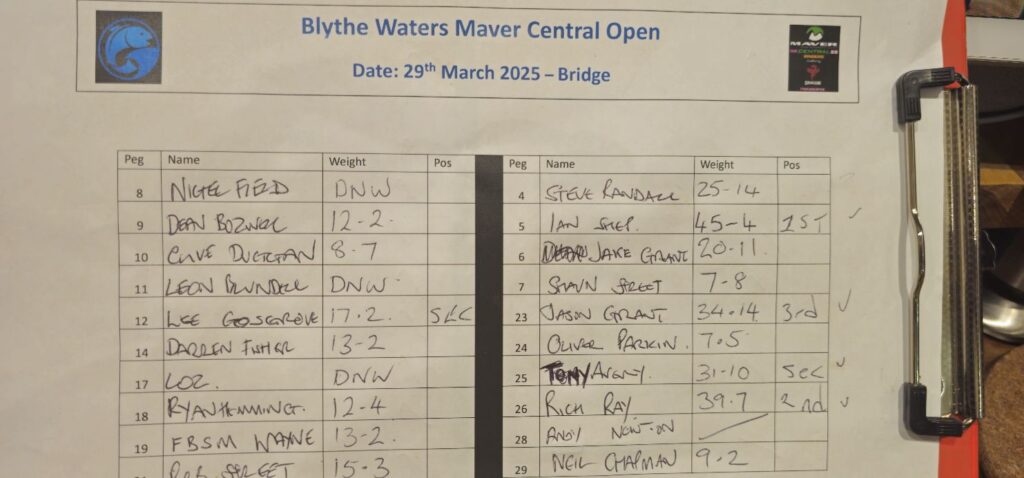 Blythe Waters Maver Central Open
Date: 29th March 2025 – Bridge
MAVER
Peg Name Weight Pos
8 NIGEL FIELD DNW
9 DEAN BOZWELL 12-2
10 CLIVE 8-7
11 LEON BLUNDELL DNW
12 LEE COSGROVE 17-2 SEC
14 DARREN FISHER 13-2
17 LOZ. DNW
18 RYAN HEMMING 12-4
19 FBSM WAYNE 13-2
ROB STREET 15-3
Peg Name Weight Pos
4 STEVE RANDALL 25-14
5 IAN 45-4 1ST
6 JAKE GRANT 20-11
7 SHAUN STREET 7-8
23 JASON GRANT 34-14 3rd
24 OLIVER PARKIN. 7-5
25 TONY 31-10 Sec
26 RICH RAY 39-7 2nd
28 ANDY NEWTON
29 NEIL CHAPMAN 9-2